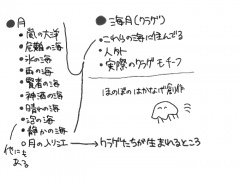 ●月
・嵐の大洋
・危難の海
・氷の海
・雨の海
・賢者の海
・神酒の海
・晴れの海
・泡の海
・静かの海
○月の入り江→クラゲたちが生まれるところ
他にもある
●海月(クラゲ)
・これらの海に住んでる
・人外
・実際のクラゲモチーフ
ほのぼのはかなげ創作